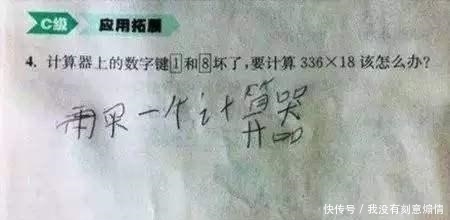 C级 应用拓展
4. 计算器上的数字键1和8坏了,要计算336×18该怎么办?
再买一个计算器
快传号/我没有刻意煽情